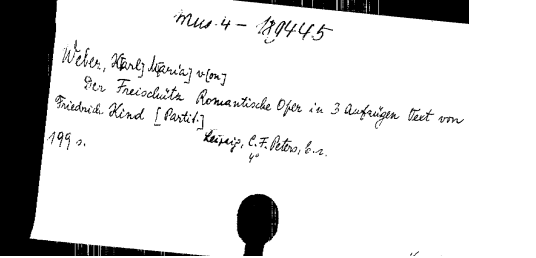 Mus. 4 - 189445
Weber, K[arl] M[aria] v[on]
Der Freischütz Romantische Oper in 3 Aufzügen Text von
Friedrich Kind [Partit.]
Leipzig, C. F. Peters, b. r.
199 s. 4°